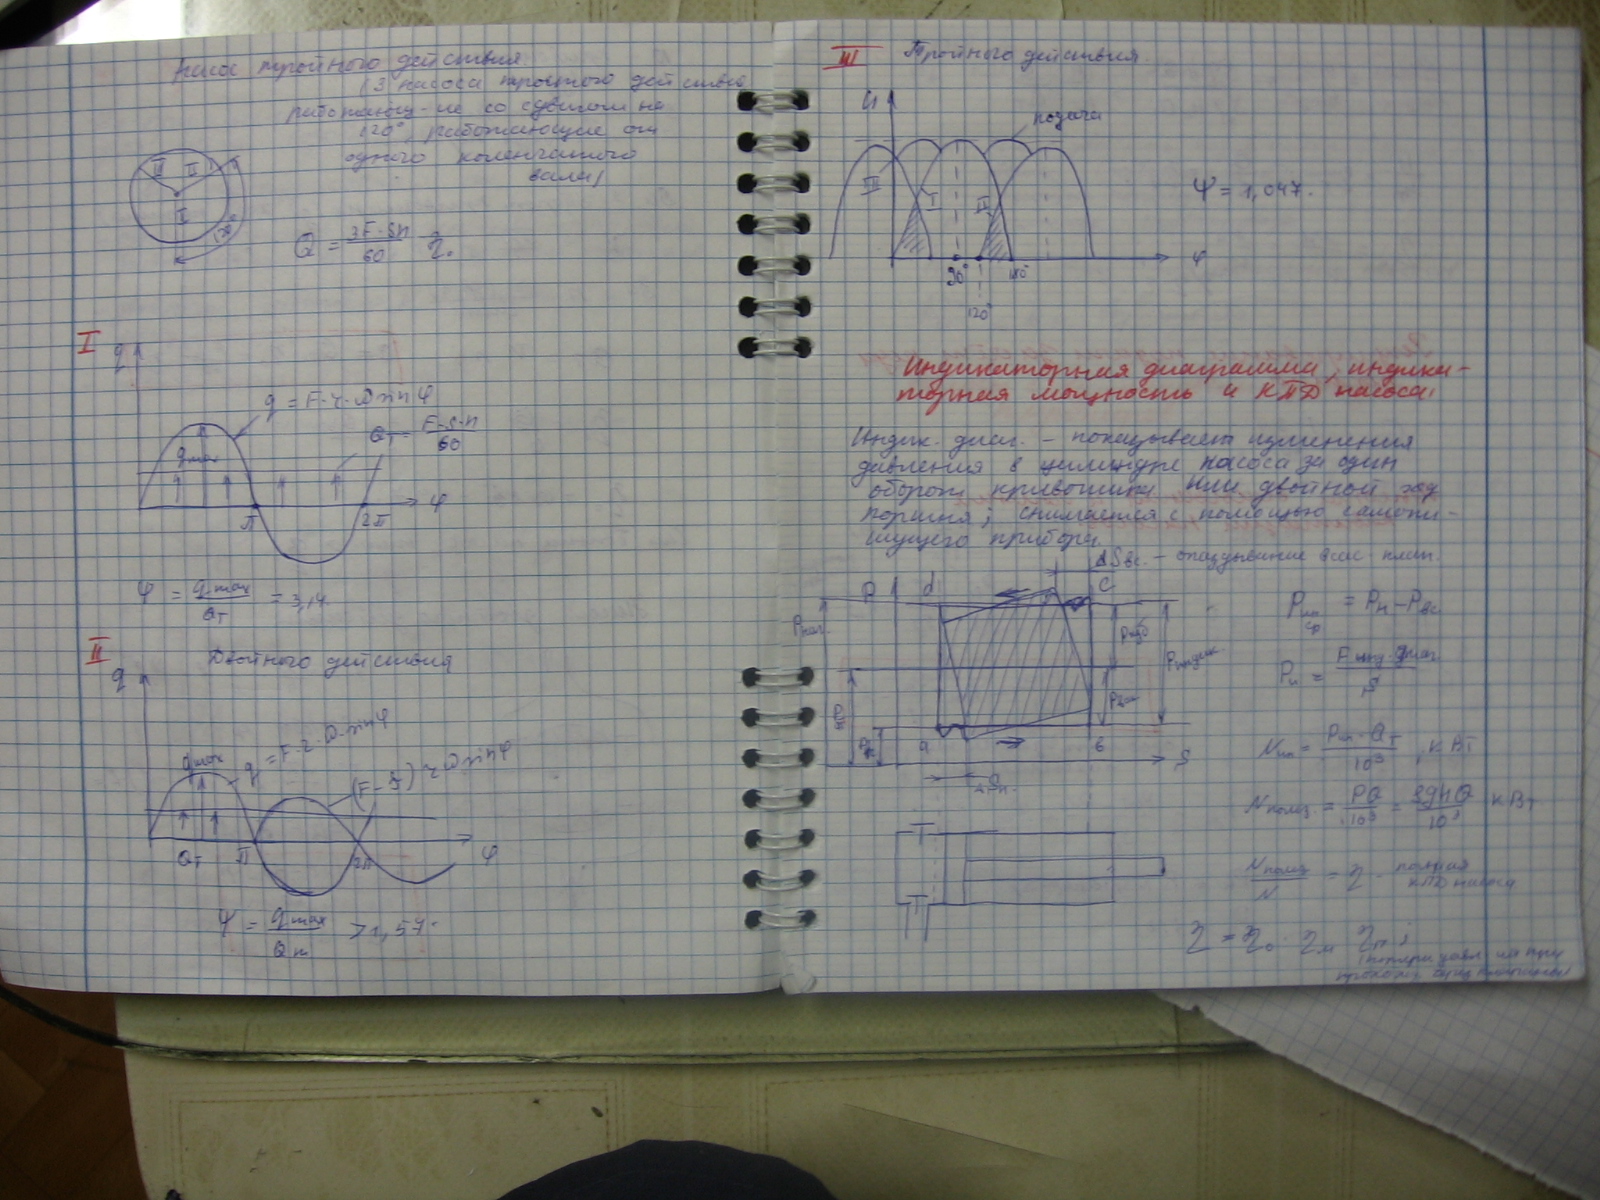 Насос тройного действия
(3 насоса простого действия
работающ-ие со сдвигом на
120°, работающие от
одного коленчатого
вала)
III II
I
120°
Q = 3F·Sn/60 η₀
I
q
q = F·r·ω sin φ
Qт = F·S·n/60
qmax
φ
π 2π
ψ = qmax/Qт = 3,14.
II Двойного действия
q
qmax q = F·r·ω·sin φ
(F-f) rω sin φ
Qт π 2π φ
ψ = qmax/Qт > 1,57.
III Тройного действия.
подача
III I II
ψ = 1,047.
90° 180° φ
120°
Индикаторная диаграмма, индика-
торная мощность и КПД насоса.
Индик. диаг. – показывает изменения
давления в цилиндре насоса за один
оборот кривошипа или двойной ход
поршня; снимается с помощью самопи-
шущего прибора.
ΔSвс. – опаздывание
P d c
Pнаг.
Pиндик.
a b S
Pин ср = Pн – Pвс
Pи = Fинд. диаг/S
Nин = Pин·Qт/10³, кВт
Nполез = PQ/10³ = ρgHQ/10³ кВт
Nполез/N = η - полный
КПД насоса
η = η₀ · ηм ηг;